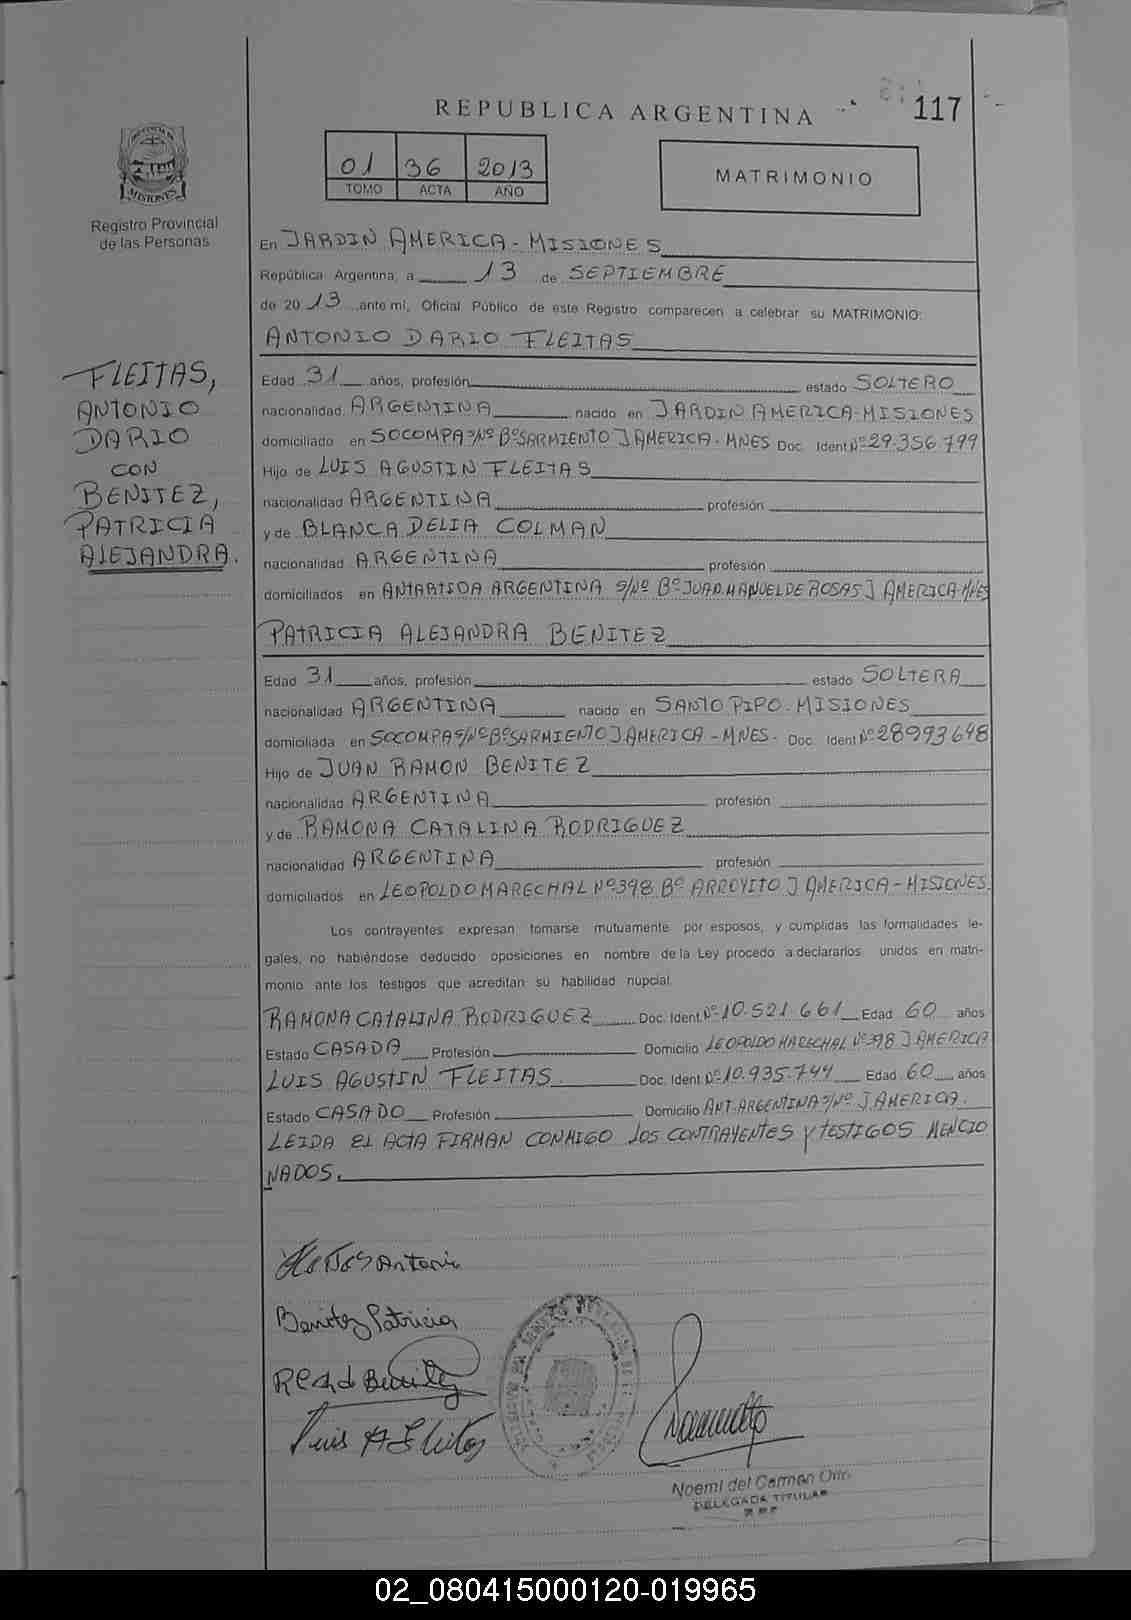 REPUBLICA ARGENTINA
117
PROVINCIA DE
MISIONES
Registro Provincial
de las Personas
01 36 2013
TOMO ACTA AÑO
MATRIMONIO
En JARDIN AMERICA - MISIONES
República Argentina, a 13 de SEPTIEMBRE
de 2013 ante mí, Oficial Público de este Registro comparecen a celebrar su MATRIMONIO:
ANTONIO DARIO FLEITAS
FLEITAS,
ANTONIO
DARIO
CON
BENITEZ,
PATRICIA
ALEJANDRA.
Edad 31 años, profesión estado SOLTERO
nacionalidad ARGENTINA nacido en JARDIN AMERICA-MISIONES
domiciliado en SOCOMPA S/Nº Bº SARMIENTO J AMERICA - MNES Doc. Ident Nº 29.356.799
Hijo de LUIS AGUSTIN FLEITAS
nacionalidad ARGENTINA profesión
y de BLANCA DELIA COLMAN
nacionalidad ARGENTINA profesión
domiciliados en ANTARTIDA ARGENTINA S/Nº Bº JUAN MANUEL DE ROSAS J AMERICA-MNES
PATRICIA ALEJANDRA BENITEZ
Edad 31 años, profesión estado SOLTERA
nacionalidad ARGENTINA nacido en SANTO PIPO - MISIONES
domiciliada en SOCOMPA S/Nº Bº SARMIENTO J AMERICA - MNES - Doc. Ident Nº 28993648
Hijo de JUAN RAMON BENITEZ
nacionalidad ARGENTINA profesión
y de RAMONA CATALINA RODRIGUEZ
nacionalidad ARGENTINA profesión
domiciliados en LEOPOLDO MARECHAL Nº 398 Bº ARROYITO J AMERICA - MISIONES.
Los contrayentes expresan tomarse mutuamente por esposos, y cumplidas las formalidades le-
gales, no habiéndose deducido oposiciones en nombre de la Ley procedo a declararlos unidos en matri-
monio ante los testigos que acreditan su habilidad nupcial.
RAMONA CATALINA RODRIGUEZ Doc. Ident. Nº 10.521.661 Edad 60 años
Estado CASADA Profesión Domicilio LEOPOLDO MARECHAL Nº 398 J AMERICA
LUIS AGUSTIN FLEITAS Doc. Ident. Nº 10.935.744 Edad 60 años
Estado CASADO Profesión Domicilio ANT. ARGENTINA S/Nº J AMERICA.
LEIDA EL ACTA FIRMAN CONMIGO LOS CONTRAYENTES Y TESTIGOS MENCIO
NADOS.
Fleitas Antonio
Benitez Patricia
R de Benitez
Luis A Fleitas
Noemi del Carmen
DELEGADA TITULAR
02_080415000120-019965